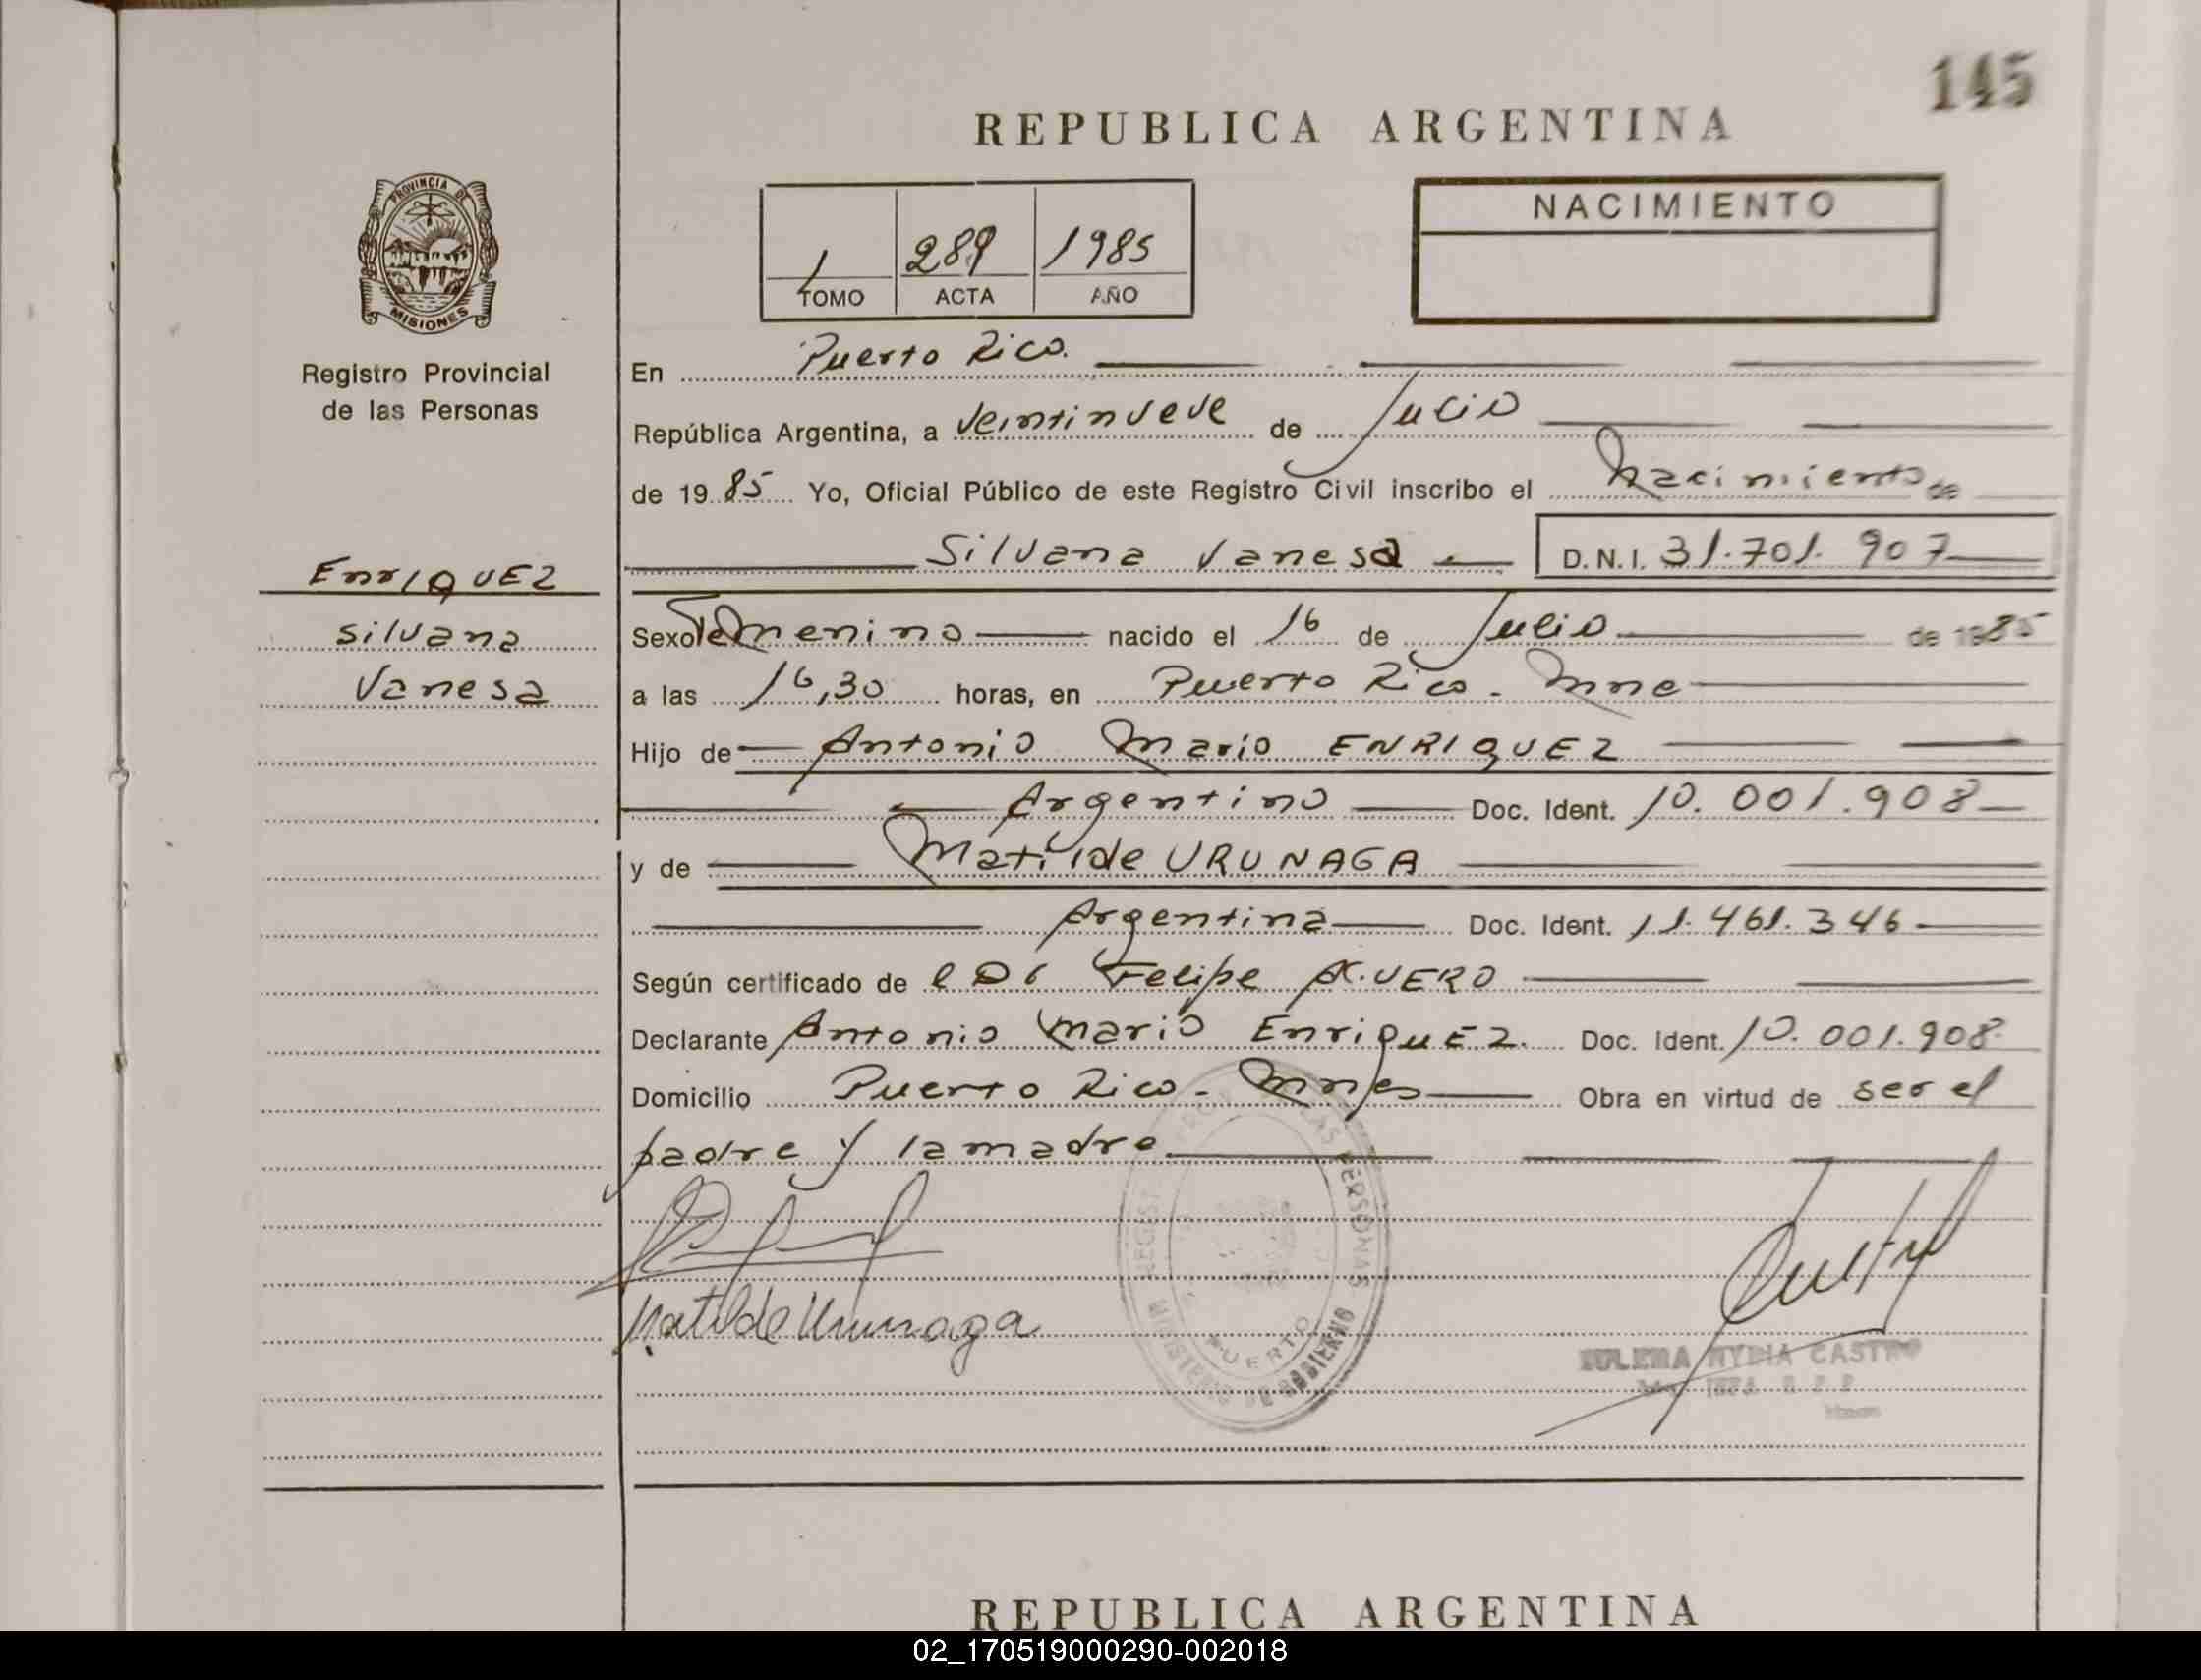 145
REPUBLICA ARGENTINA
PROVINCIA DE
MISIONES
Registro Provincial
de las Personas
1 289 1985
TOMO ACTA AÑO
NACIMIENTO
En Puerto Rico.
República Argentina, a Veintinueve de Julio
de 19 85 Yo, Oficial Público de este Registro Civil inscribo el Nacimiento de
Silvana Vanesa D.N.I. 31.701.907
ENRIQUEZ
Silvana
Vanesa
Sexo Femenino nacido el 16 de Julio de 1985
a las 16,30 horas, en Puerto Rico - Mnes
Hijo de Antonio Mario ENRIQUEZ
Argentino Doc. Ident. 10.001.908
y de Matilde URUNAGA
Argentina Doc. Ident. 11.461.346
Según certificado de Felipe
Declarante Antonio Mario EnriquEZ. Doc. Ident. 10.001.908
Domicilio Puerto Rico - Mnes Obra en virtud de ser el
padre y la madre
Matilde Urunaga
PERSONAS
MINISTERIO DE GOBIERNO
PUERTO
NYDIA CASTRO
REPUBLICA ARGENTINA
02_170519000290-002018